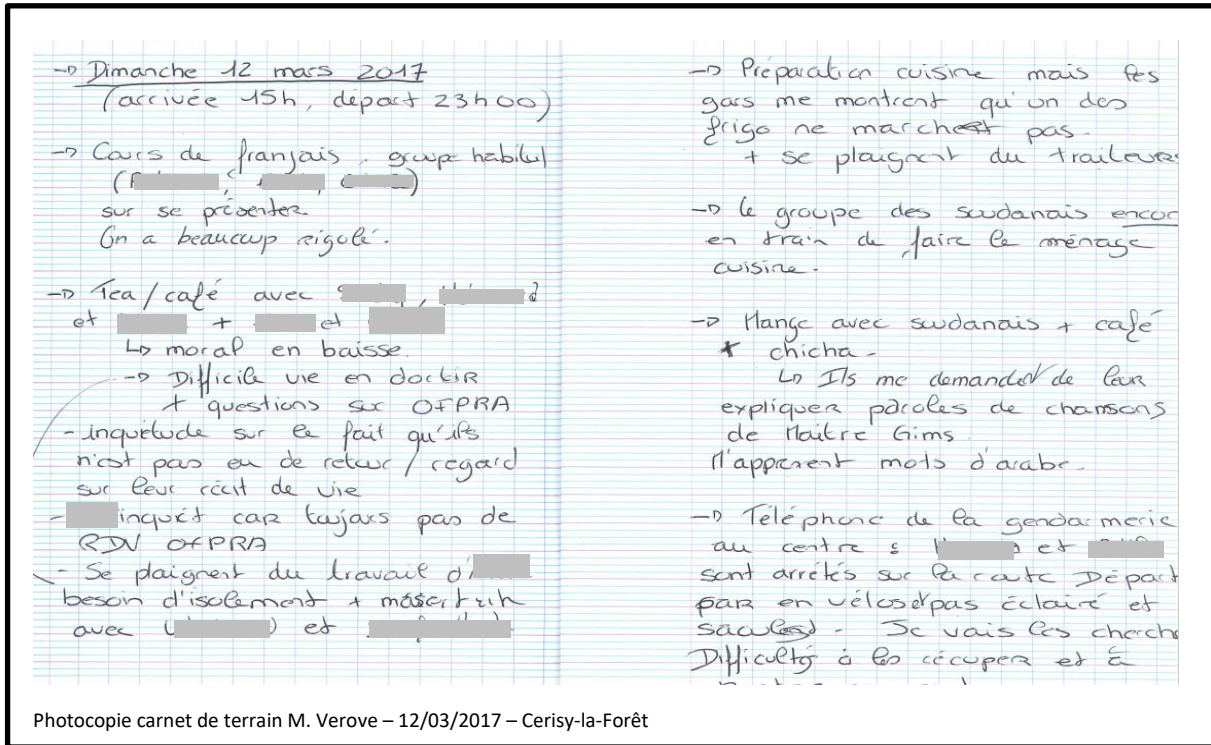 -> Dimanche 12 mars 2017
(arrivée 15h, départ 23h00)
-> Cours de français. groupe habituel
(
sur se présenter.
On a beaucoup rigolé.
-> Tea/café avec
et + et
↳ moral en baisse.
-> Difficile vie en
+ questions sur OFPRA
- inquiétude sur le fait qu'ils
n'est pas eu de retour / regard
sur leur récit de vie
- inquiet car toujours pas de
RDV OFPRA
- Se plaignent du travail d'
besoin d'isolement +
avec ( ) et
-> Préparation cuisine mais les
gars me montrent qu'un des
frigo ne marche pas.
+ se plaignent du traiteur
-> le groupe des soudanais encor
en train de faire le ménage
cuisine.
-> Mange avec soudanais + café
+ chicha -
↳ Ils me demandent de leur
expliquer paroles de chansons
de Maitre Gims.
M'apprenent mots d'arabe.
-> Téléphone de la gendarmerie
au centre : et
sont arrêtés sur la route Départ
par en vélos pas éclairé et
. Je vais les cherch
Difficultés à les récuperer et à
Photocopie carnet de terrain M. Verove – 12/03/2017 – Cerisy-la-Forêt